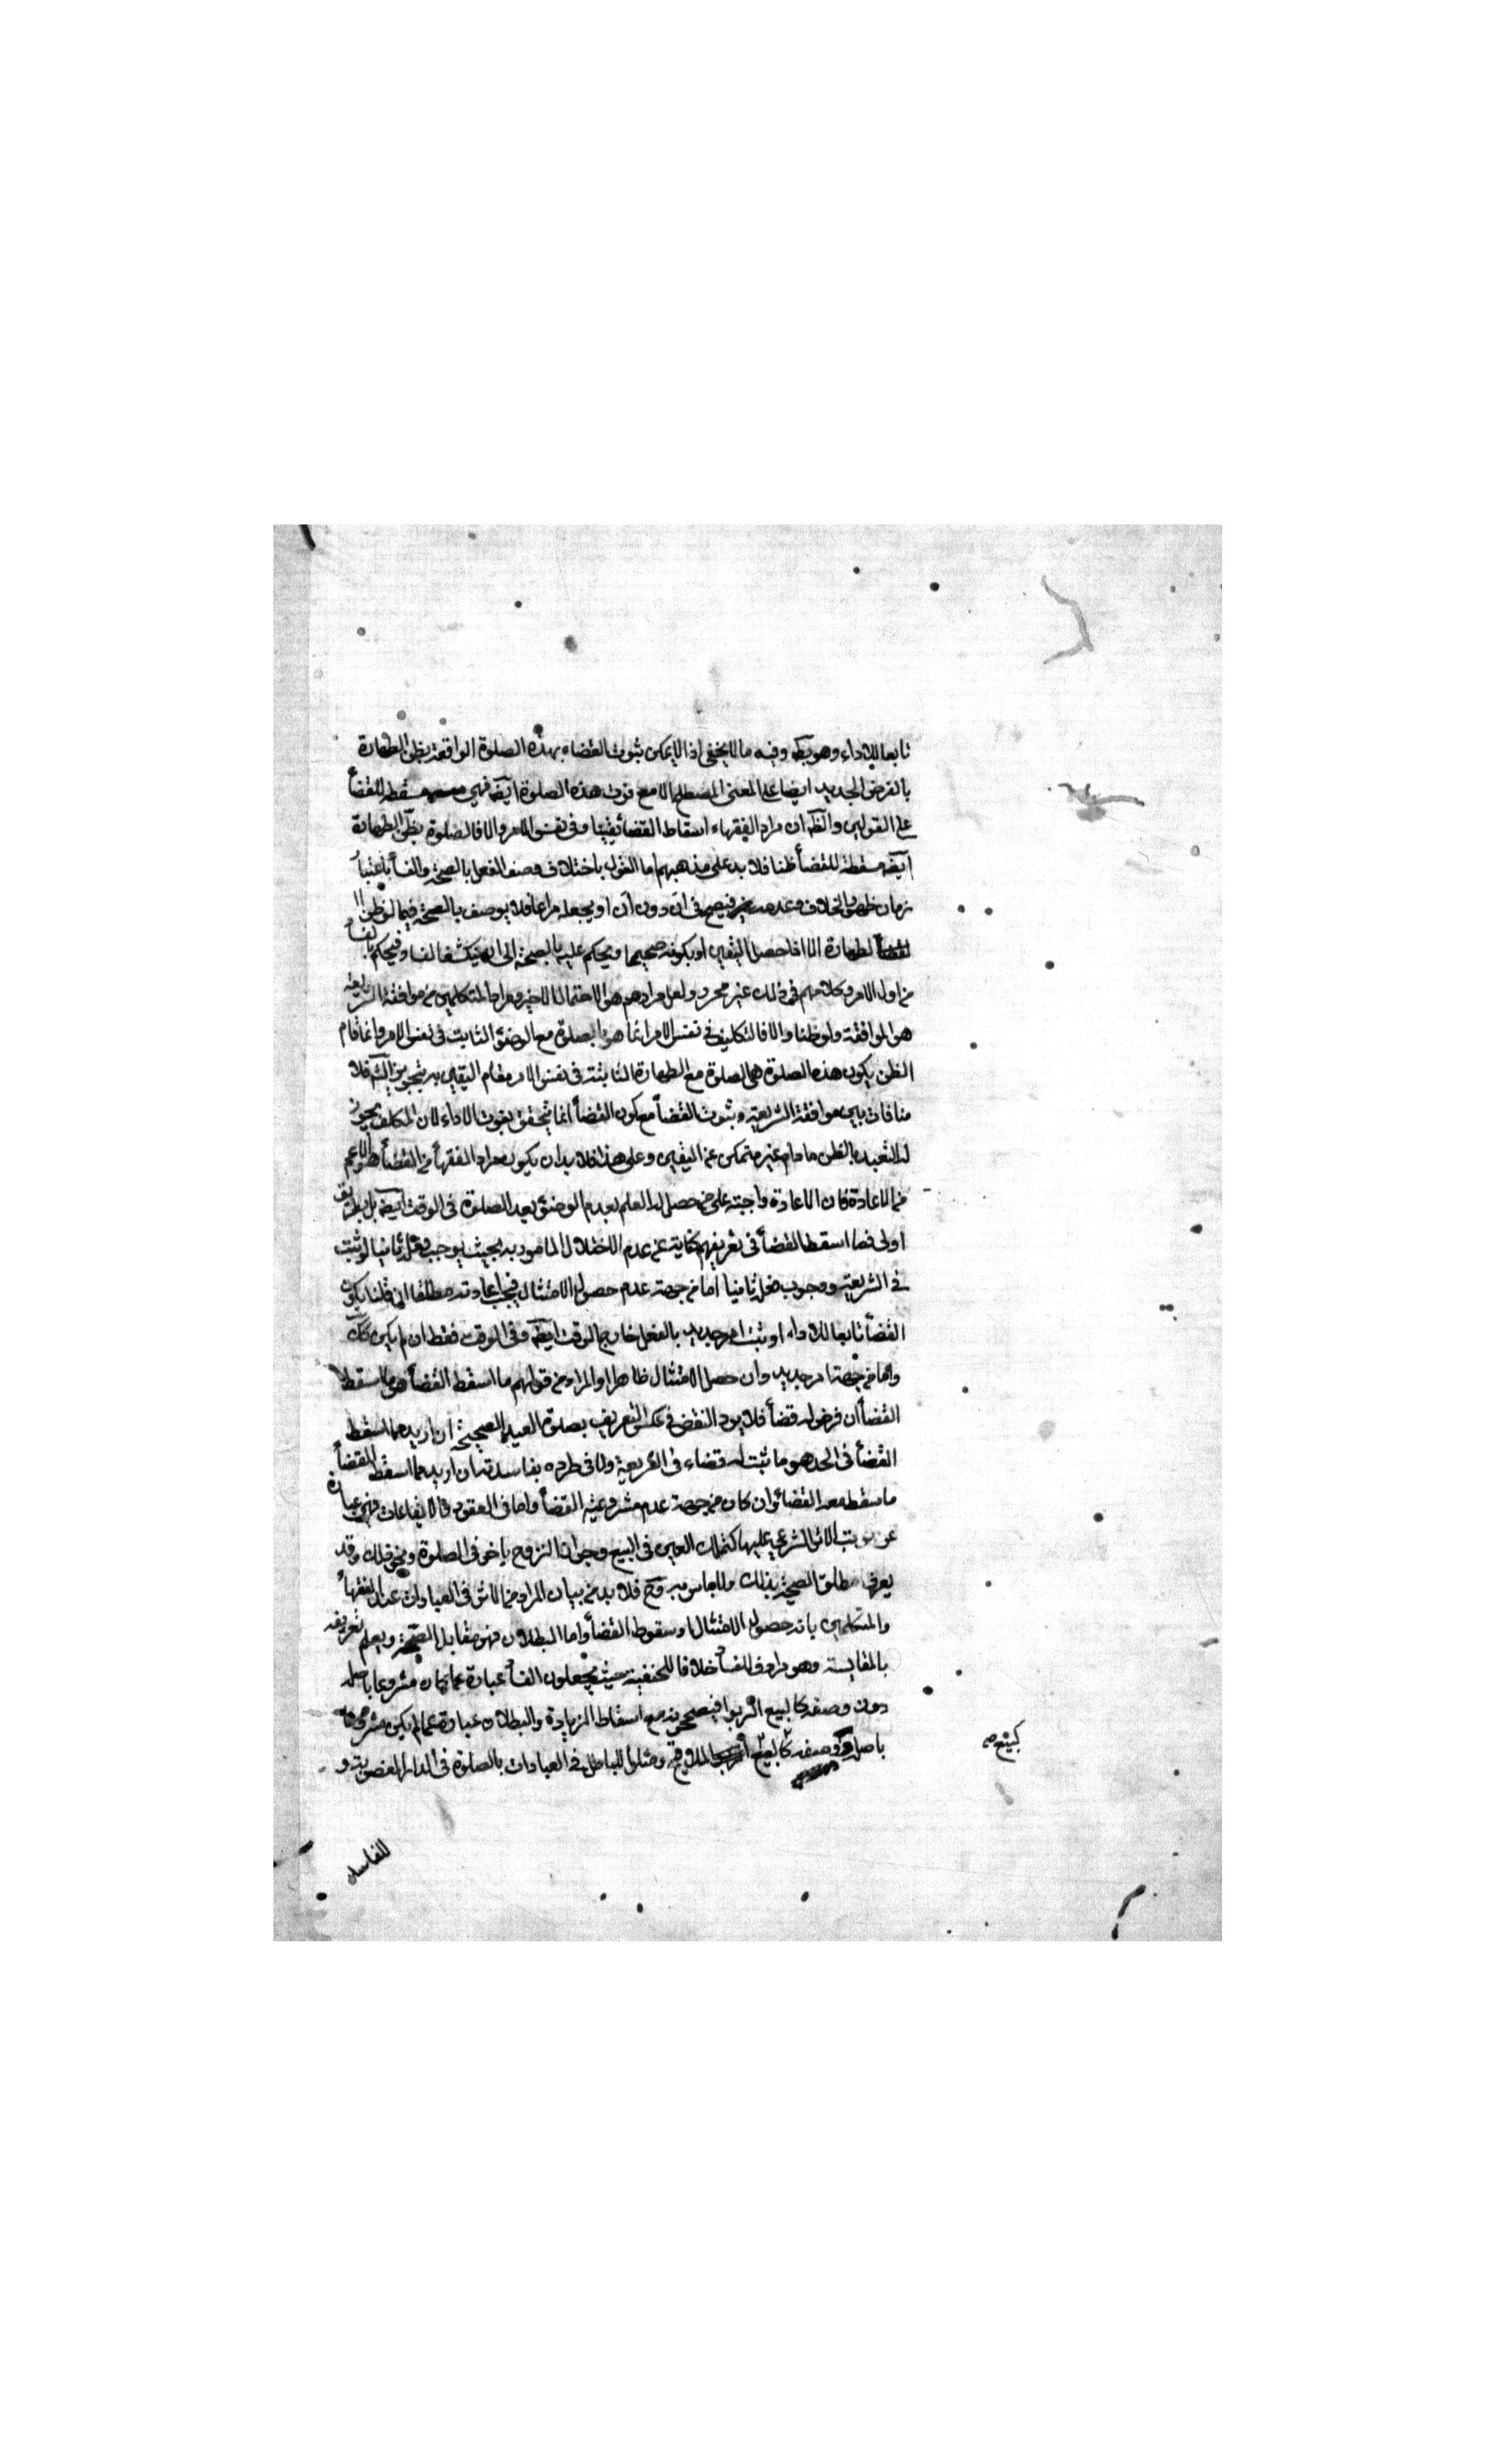 تابعا للاداء وهو بط وفيه ما لا يخفى اذ لا يمكن ثبوت القضاء بهذه الصلوة الواقعة بظن الطهارة
بالفرض الجديد ايضا على المعنى المصطلح الا مع فوت هذه الصلوة ايضا فهى مسقطة للقضأ
على القولين والظ ان مراد الفقهاء اسقاط القضأ يقينا وفى نفس الامر والا فالصلوة بظن الطهارة
ايضه مسقطة للقضأ ظنا فلا بد على مذهبهم اما القول باختلاف وصف الفعل بالصحة والفسأ باعتبار
زمان ظهور الخلاف وعدمه فيصح فى آن دون آن او يجعله مراعا فلا يوصف بالصحة فيما لو ظن
الطهارة الا اذا حصل اليقين او بكونه صحيحا ويحكم عليه بالصحة الى ان ينكشف الفساد فيحكم بالفساد
من اول الامر وكلامهم فى ذلك غير محرر ولعل مرادهم هو الاحتمال الاخير ومراد المتكلمين من موافقة الشريعة
هو الموافقة ولو ظنا والا فالتكليف فى نفس الامر انما هو بالصلوة مع الوضؤ الثابت فى نفس الامر وانما قام
الظن بكون هذه الصلوة هى الصلوة مع الطهارة الثابتة فى نفس الامر مقام اليقين به بتجويز الش فلا
منافات بين موافقة الشريعة وثبوت القضأ مع كون القضأ انما يتحقق بفوت الاداء لان المكلف يجوز
له التعبد بالظن ما دام غير متمكن عن اليقين وعلى هذا فلا بد ان يكون مراد الفقهأ من القضأ هو الاعم
من الاعادة فان الاعادة واجبة على من حصل له العلم بعدم الوضؤ بعد الصلوة فى الوقت ايضه بل بطريق
اولى فما اسقط القضأ فى تعريفهم كناية عن عدم الاختلال المامور به بحيث يوجب فعله ثانيا لو ثبت
فى الشريعة ووجوب فعله ثانيا اما من جهة عدم حصول الامتثال فيجب اعادته مطلقا ان قلنا بكون
القضأ تابعا للاداء او ثبت امر جديد بالفعل خارج الوقت ايضه وفى الوقت فقط ان لم يكن كك
واما من جهة امر جديد وان حصل الامتثال ظاهرا والمراد من قولهم ما اسقط القضأ هو ما اسقط
القضأ ان فرض له قضأ فلا يرد النقض فى عكس التعريف بصلوة العيد الصحيحة ان اريد مما اسقط
القضأ فى الحد هو ما ثبت له قضاء فى الشريعة ولا فى طرده بفاسدته ان اريد مما اسقط القضأ
ما سقط معه القضأ وان كان من جهة عدم مشروعية القضأ واما فى العقود والايقاعات فهى عبارة
عن ترتب الاثر الشرعى عليها كتملك العين فى البيع وجواز التزوج باخر فى الطلاق ونحو ذلك وقد
يعرف مطلق الصحة بذلك ولا باس به وح فلا بد من بيان المراد من الاثر فى العبادات عند الفقهأ
والمتكلمين بانه حصول الامتثال او سقوط القضأ واما البطلان فهو مقابل الصحة ويعلم تعريفه
بالمقايسة وهو مرادف للفسأ خلافا للحنفية حيث يجعلون الفسأ عبارة عما كان مشروعا باصله
دون وصفه كالبيع الربوا فيصححونه مع اسقاط الزيادة والبطلان عبارة عما لم يكن مشروعا
باصله ووصفه كبيع الملاقيح ومثلوا للباطل فى العبادات بالصلوة فى الدار المغصوبة و
كبيع
للفاسد